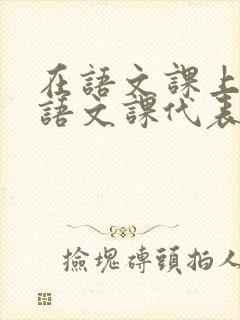 在語文課上
語文課代表
撿塊磚頭拍人